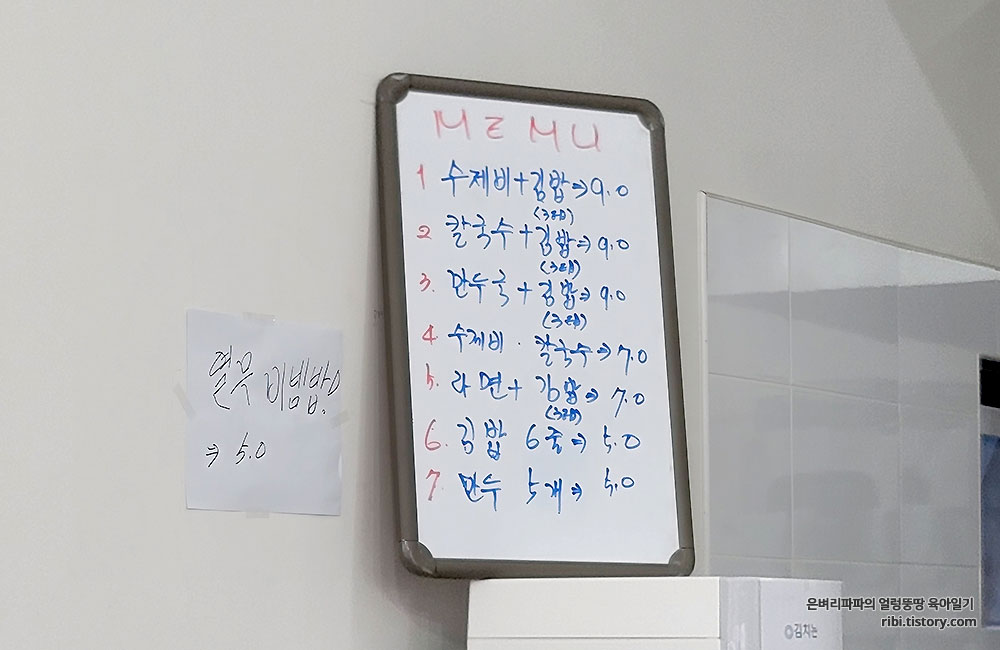 MEMU
1 수제비+김밥⇒9.0
(3줄)
2 칼국수+김밥⇒9.0
(3줄)
3. 만두국+김밥⇒9.0
(3줄)
4 수제비 · 칼국수⇒7.0
5. 라면+김밥⇒7.0
(3줄)
6. 김밥 6줄⇒5.0
7. 만두 5개⇒5.0
열무 비빔밥
⇒ 5.0
김치는
은벼리파파의 얼렁뚱땅 육아일기
ribi.tistory.com